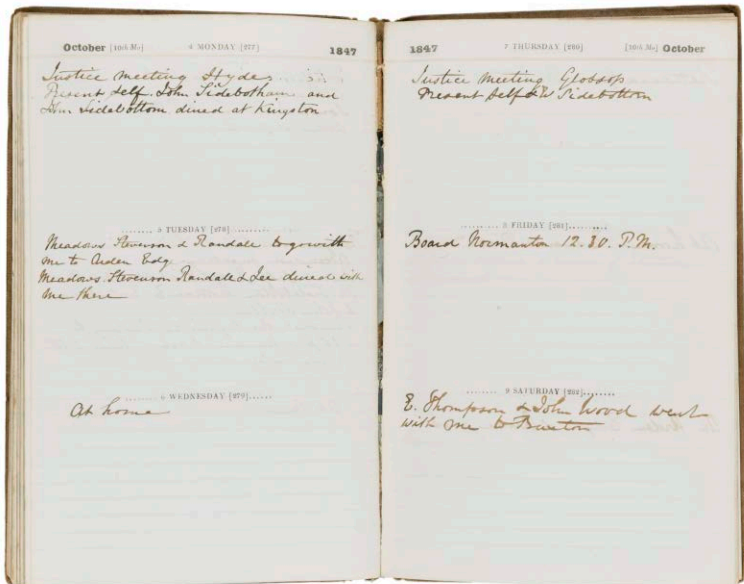 October [10th Mo] 4 MONDAY [277] 1847
Justice meeting Hyde
Present Self John Sidebotham and
Wm. Sidebottom dined at Kingston
5 TUESDAY [278]
Meadows Stevenson & Randale to go with
me to Alden Edg
Meadows Stevenson Randale & Lee dined with
me there
6 WEDNESDAY [279]
At home
1847 7 THURSDAY [280] [10th Mo] October
Justice Meeting Glossop
Present Self & W Sidebottom
8 FRIDAY [281]
Board Normanton 12.30. P.M.
9 SATURDAY [282]
E. Thompson & John Wood went
with me to Buxton